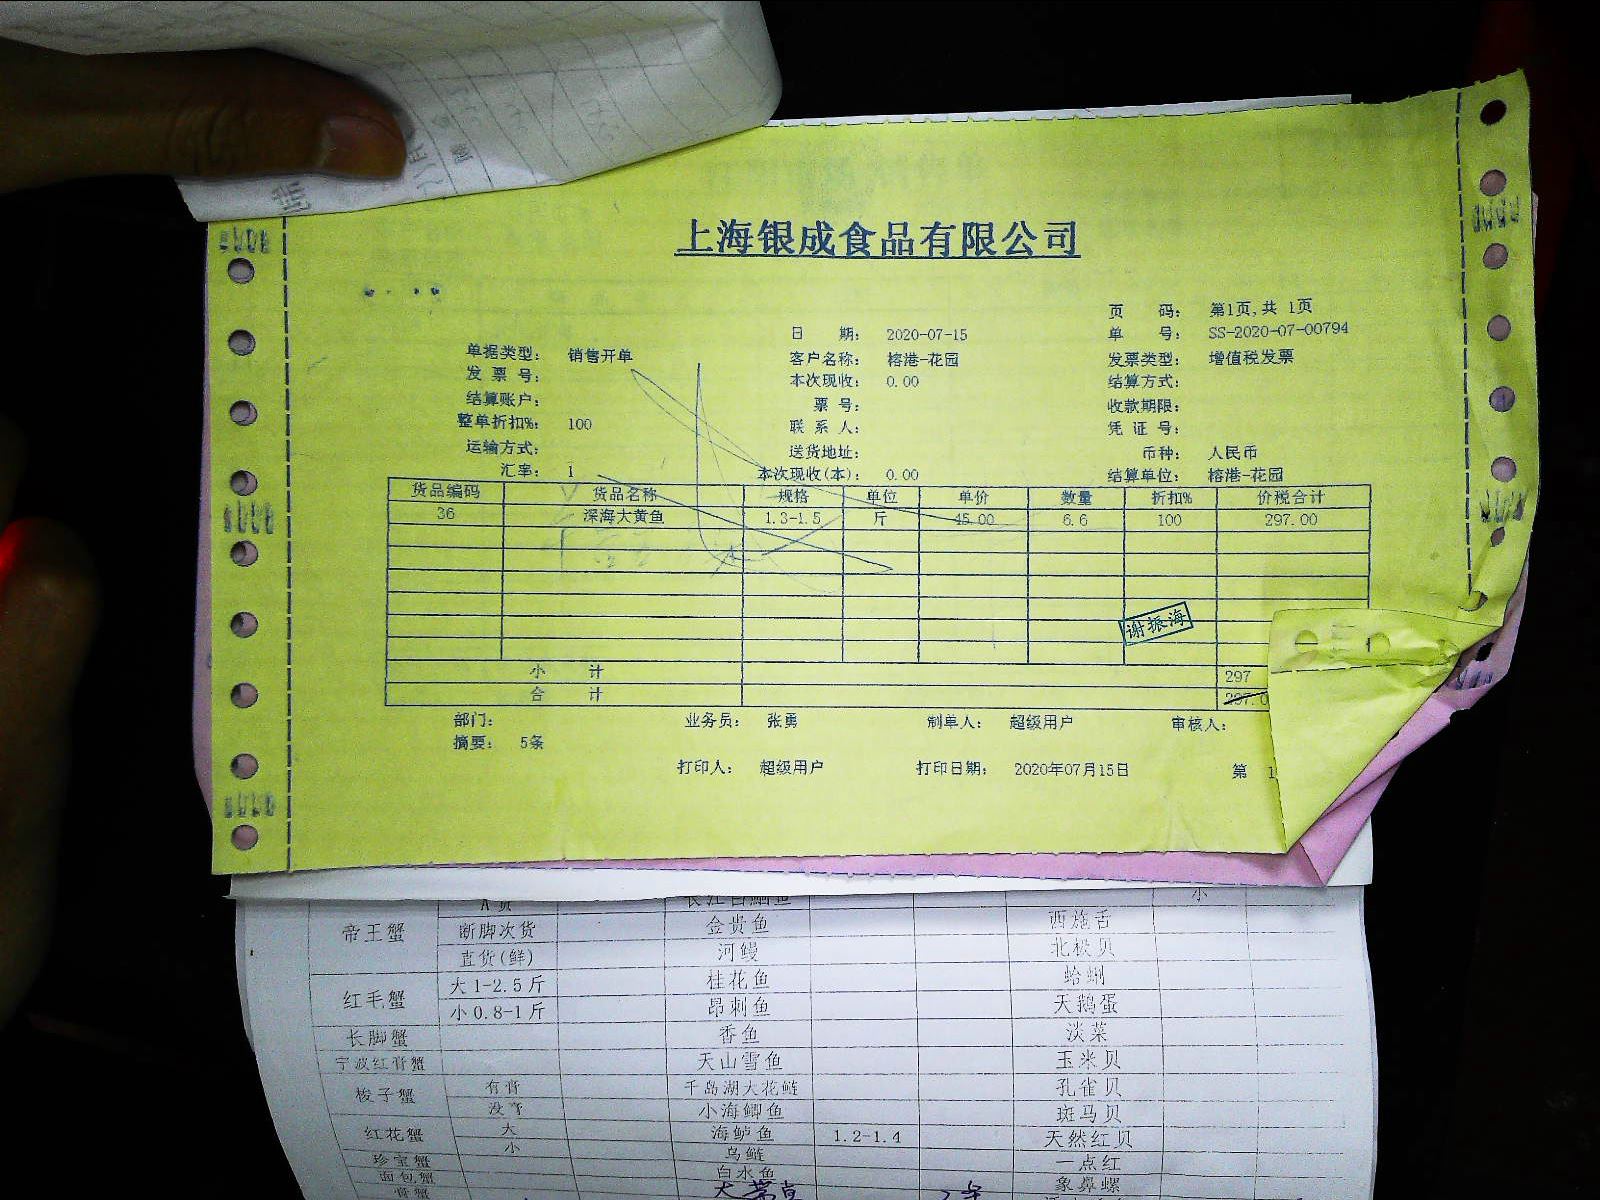 上海银成食品有限公司
页 码: 第1页,共 1页
日 期: 2020-07-15 单 号: SS-2020-07-00794
单据类型: 销售开单 客户名称: 榕港-花园 发票类型: 增值税发票
发 票 号: 本次现收: 0.00 结算方式:
结算账户: 票 号: 收款期限:
整单折扣%: 100 联 系 人: 凭 证 号:
运输方式: 送货地址: 币种: 人民币
汇率: 1 本次现收(本): 0.00 结算单位: 榕港-花园
货品编码 货品名称 规格 单位 单价 数量 折扣% 价税合计
36 深海大黄鱼 1.3-1.5 斤 45.00 6.6 100 297.00
谢振海
小 计 297
合 计 297.0
部门: 业务员: 张勇 制单人: 超级用户 审核人:
摘要: 5条
打印人: 超级用户 打印日期: 2020年07月15日 第 1
小
帝王蟹 断脚次货 金贵鱼 西施舌
直货(鲜) 河鳗 北极贝
红毛蟹 大1-2.5斤 桂花鱼 蛤蜊
小0.8-1斤 昂刺鱼 天鹅蛋
长脚蟹 香鱼 淡菜
宁波红膏蟹 天山雪鱼 玉米贝
梭子蟹 有膏 千岛湖大花鲢 孔雀贝
没膏 小海鲫鱼 斑马贝
红花蟹 大 海鲈鱼 1.2-1.4 天然红贝
小 乌鲢 一点红
珍宝蟹 白水鱼 象鼻螺
面包蟹
膏蟹